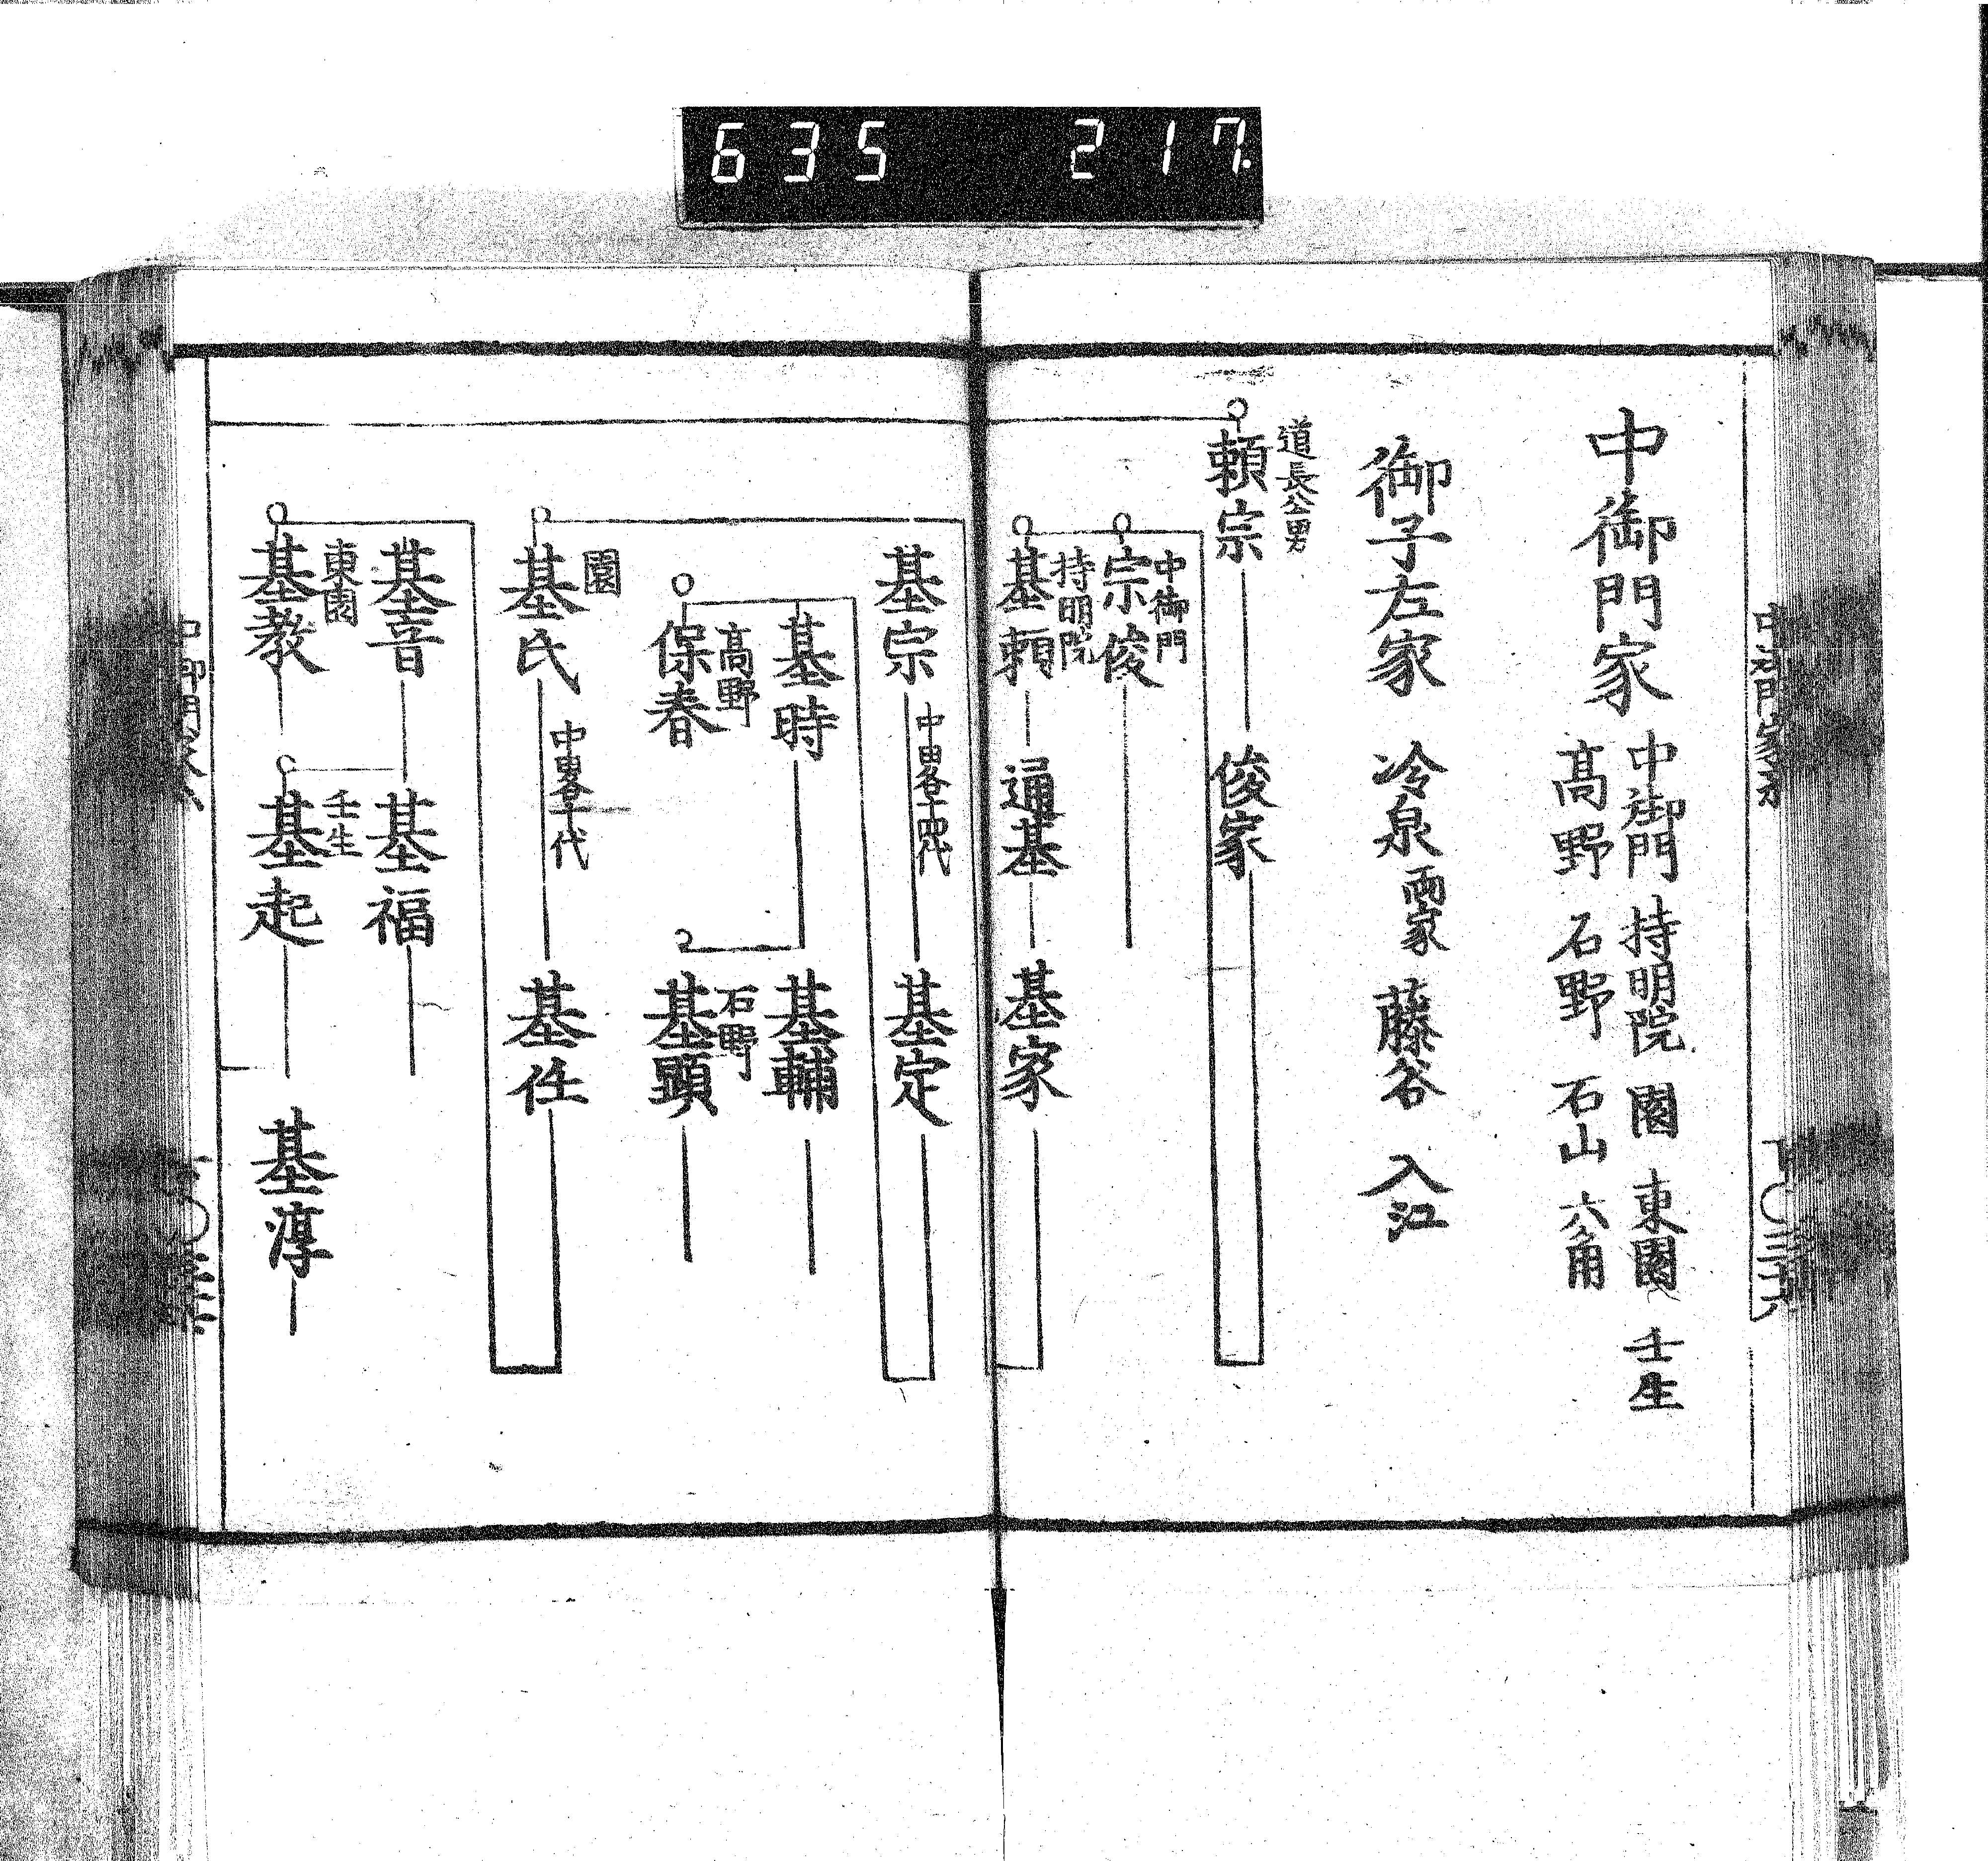 635 217.
中御門家
中御門 持明院 園 東園 壬生
髙野 石野 石山 六角
御子左家 冷泉 両家 藤谷 入江
道長公男
頼宗 俊家
中御門
宗俊
持明院
基頼 通基 基家
基宗 中畧十四代 基定
基時 基輔
髙野
保春
石野
基顕
園
基氏 中畧十代 基任
基音 基福
東園
基教
壬生
基起 基淳